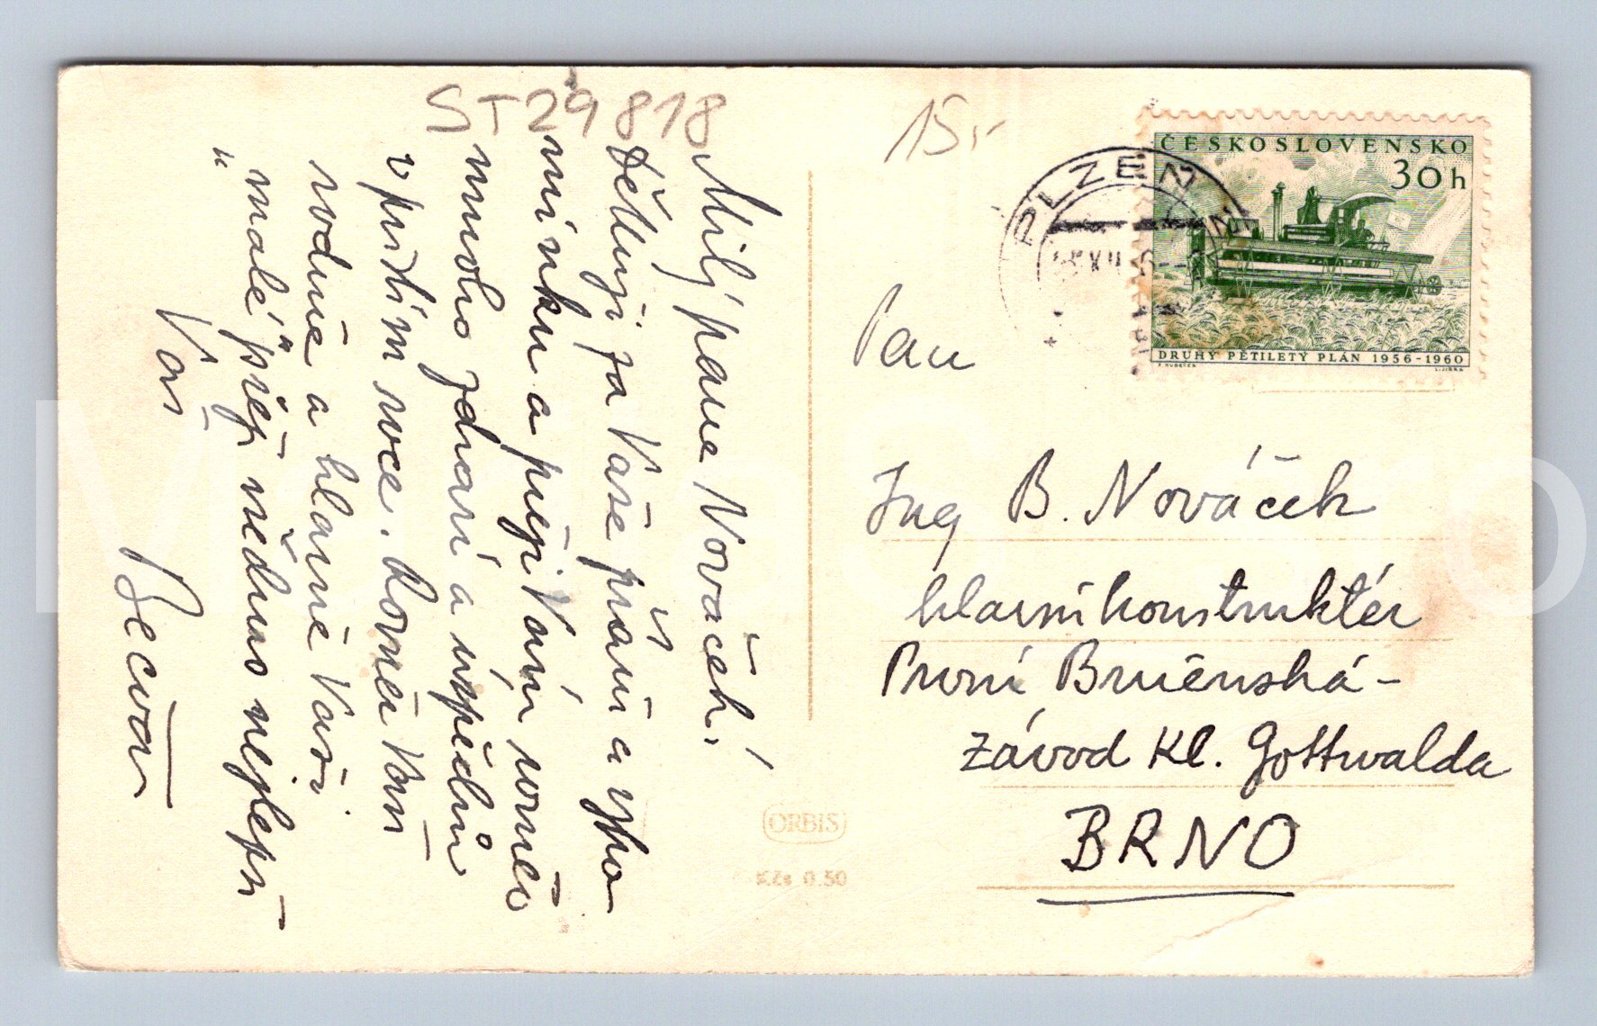 ST29818
15,-
Milý pane Nováček!
Děkuji za Vaše přání a vzpo
mínku a přeji Vám rovněž
mnoho zdraví a úspěchů
v příštím roce. Rovněž Vám
rodině a hlavně Vaší
"malé" přeji všechno nejlepší
Váš
Bečvář
PLZEŇ
XII
ČESKOSLOVENSKO
30h
DRUHÝ PĚTILETÝ PLÁN 1956-1960
Pan
Ing B. Nováček
hlavní konstruktér
První Brněnská-
závod Kl. Gottwalda
BRNO
ORBIS
Kčs 0.50